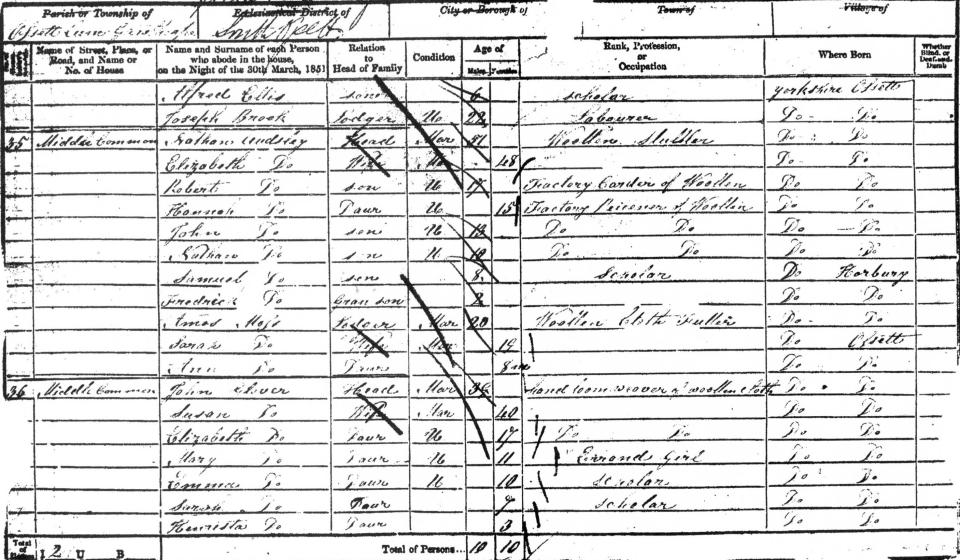 Parish or Township of Ecclesiastical District of City or Borough of Town of Village of
Name of Street, Place, or Road, and Name or No. of House Name and Surname of each Person who abode in the house, on the Night of the 30th March, 1851 Relation to Head of Family Condition Age of Males Females Rank, Profession, or Occupation Where Born Whether Blind, or Deaf-and-Dumb
Alfred Ellis son 6 scholar Yorkshire Ossett
Joseph Brook Lodger U 22 Labourer Do Do
35 Middle Common Nathan Head Mar 51 Woollen Do Do
Elizabeth Do Wife Mar 48 Do Do
Robert Do son U 17 Factory Carder of Woollen Do Do
Hannah Do Daur U 15 Factory Piecener of Woollen Do Do
John Do son U 13 Do Do Do Do
Nathan Do son U 10 Do Do Do Do
Samuel Do son 8 scholar Do Horbury
Fredrick Do Gran son 2 Do Do
Amos Mofs Lodger Mar 20 Woollen Cloth Fuller Do Do
Sarah Do Wife Mar 19 Do Ossett
Ann Do Daur 8 m Do Do
36 Middle Common John Head Mar 36 Hand loom weaver of woollen cloth Do Do
Susan Do Wife Mar 40 Do Do
Elizabeth Do Daur U 17 Do Do Do Do
Mary Do Daur U 11 Errand Girl Do Do
Emma Do Daur U 10 scholar Do Do
Sarah Do Daur 7 scholar Do Do
Henrietta Do Daur 3 Do Do
Total of Houses I 2 U B Total of Persons... 10 10